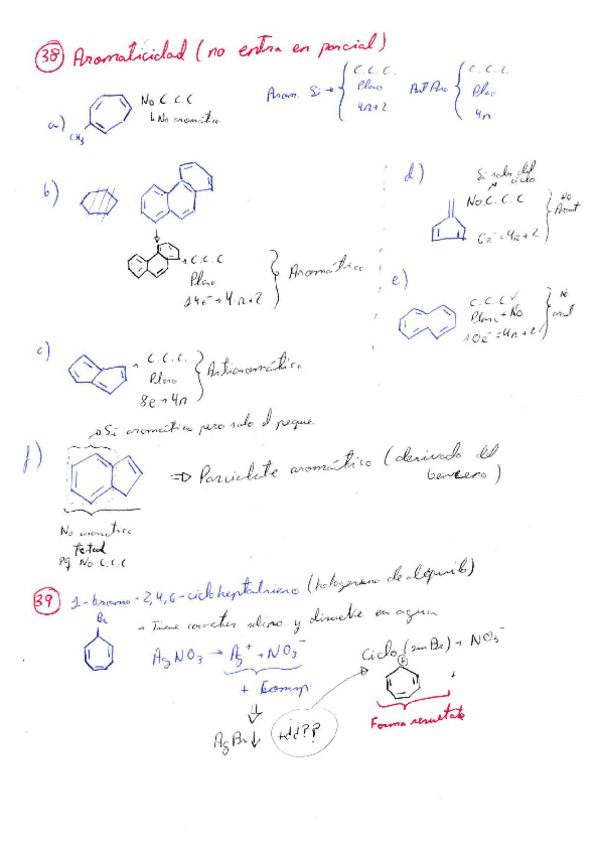 38 Aromaticidad (no entra en parcial)
a) CH3 No C.C.C
↳ No aromático
Arom. Si → { C.C.C. Plano 4n+2
AntAro { C.C.C. Plano 4n
b)
C.C.C
Plano
14e⁻ → 4n+2
} Aromático
c)
C.C.C.
Plano
8e → 4n
} Antiaromático
d)
No C.C.C
6e⁻ = 4n+2
} No Aromat
e)
C.C.C ✓
Plano → No
10e⁻ = 4n+2 ✓
} No
f)
Si aromático pero solo el peque
⇒ Parcialmente aromático (derivado del
benceno)
No aromático
total
pq No C.C.C
39 1-bromo-2,4,6-cicloheptatrieno (halogenuro de alquilo)
Br
→ Tiene caracter salino y disuelve en agua
AgNO3 → Ag⁺ + NO3⁻
+
⇓
AgBr↓
+¿¿??
Ciclo (sin Br) + NO3⁻
+
Forma resultante